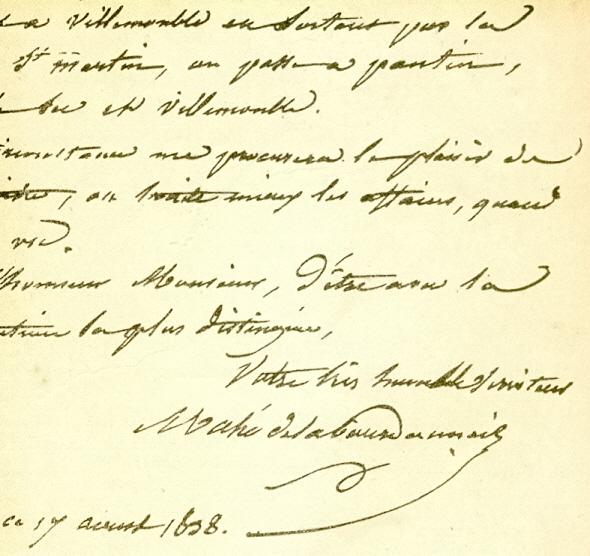 a Villemonble en sortant par la
St martin, on passe a pantin,
sec et Villemonble.
me procurera le plaisir de
on traite mieux les affaires, quand
l'honneur Monsieur, d'être avec la
la plus distinguée,
Votre très humble Serviteur
Mahé de la Bourdonnais
ce 17 aoust 1838.